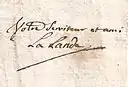 Votre serviteur et ami
La Lande